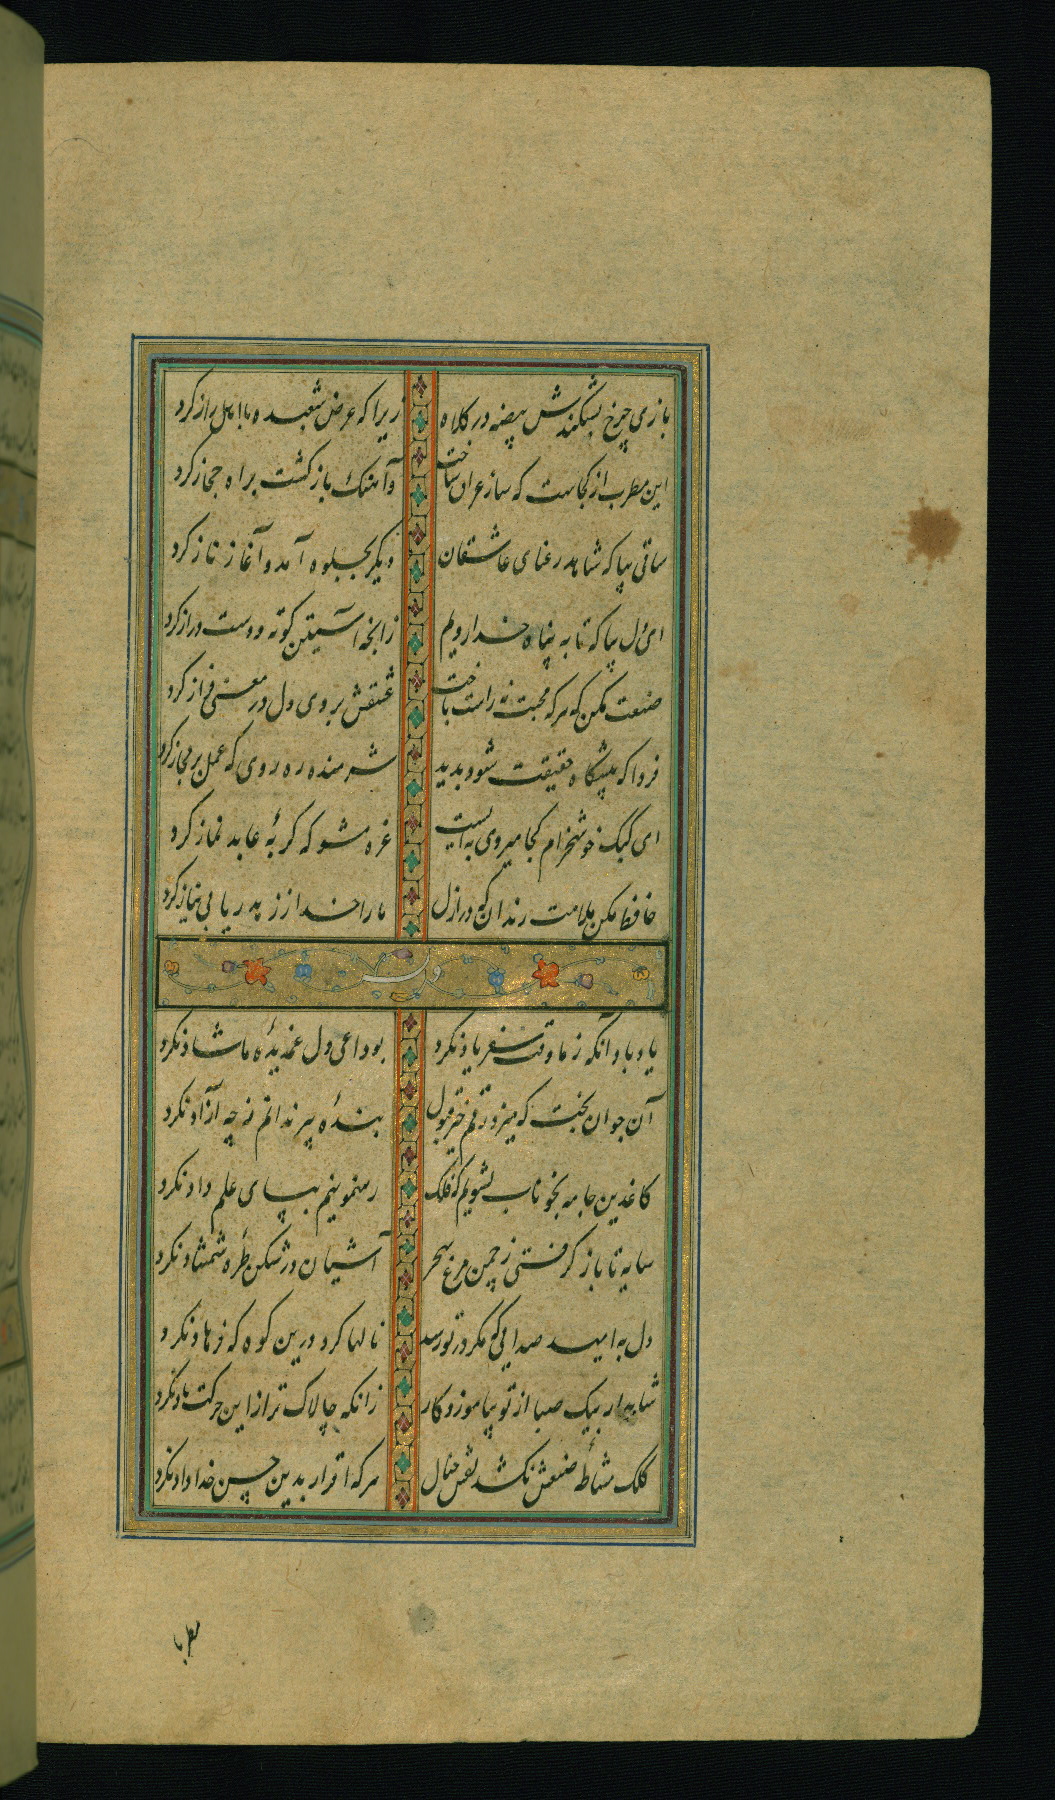 بازی چرخ بشکندش بیضه در کلاه زیرا که عرض شعبده با اهل راز کرد
این مطرب از کجاست که ساز عراق ساخت وآهنگ بازگشت براه حجاز کرد
ساقی بیا که شاهد رعنای عاشقان دیگر بجلوه آمد و آغاز ناز کرد
ای دل بیا که تا به پناه خدا رویم زانچه آستین کوته و دست دراز کرد
صنعت مکن که هر که محبت نه راست باخت عشقش بروی دل در معنی فراز کرد
فردا که پیشگاه حقیقت شود پدید شرمنده ره روی که عمل بر مجاز کرد
ای کبک خوشخرام کجا میروی بایست غره مشو که گربهٔ عابد نماز کرد
حافظ مکن ملامت رندان که در ازل ما را خدا ز زهد ریا بی نیاز کرد
وله
یاد باد آنکه ز ما وقت سفر یاد نکرد بوداعی دل غمدیدهٔ ما شاد نکرد
آن جوان بخت که میزد رقم خیر قبول بندهٔ پیر ندانم ز چه آزاد نکرد
کاغذین جامه بخوناب بشویم که فلک رهنمونیم بپای علم داد نکرد
سایه تا باز گرفتی ز چمن مرغ سحر آشیان در شکن طره شمشاد نکرد
دل به امید صدایی که مگر در تو رسد نالها کرد درین کوه که فرهاد نکرد
شاید ار پیک صبا از تو بیاموزد کار زانکه چالاک تر از این حرکت باد نکرد
کلک مشاطهٔ صنعش نکشد نقش خیال هر که اقرار بدین حسن خداداد نکرد
مطربا